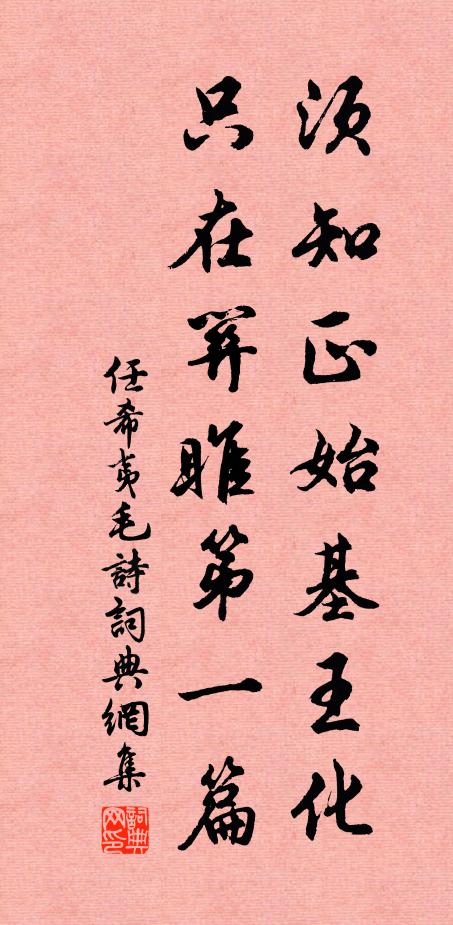 須知正始基王化
只在關雎第一篇
任希夷毛詩詞典網集
詞典网印